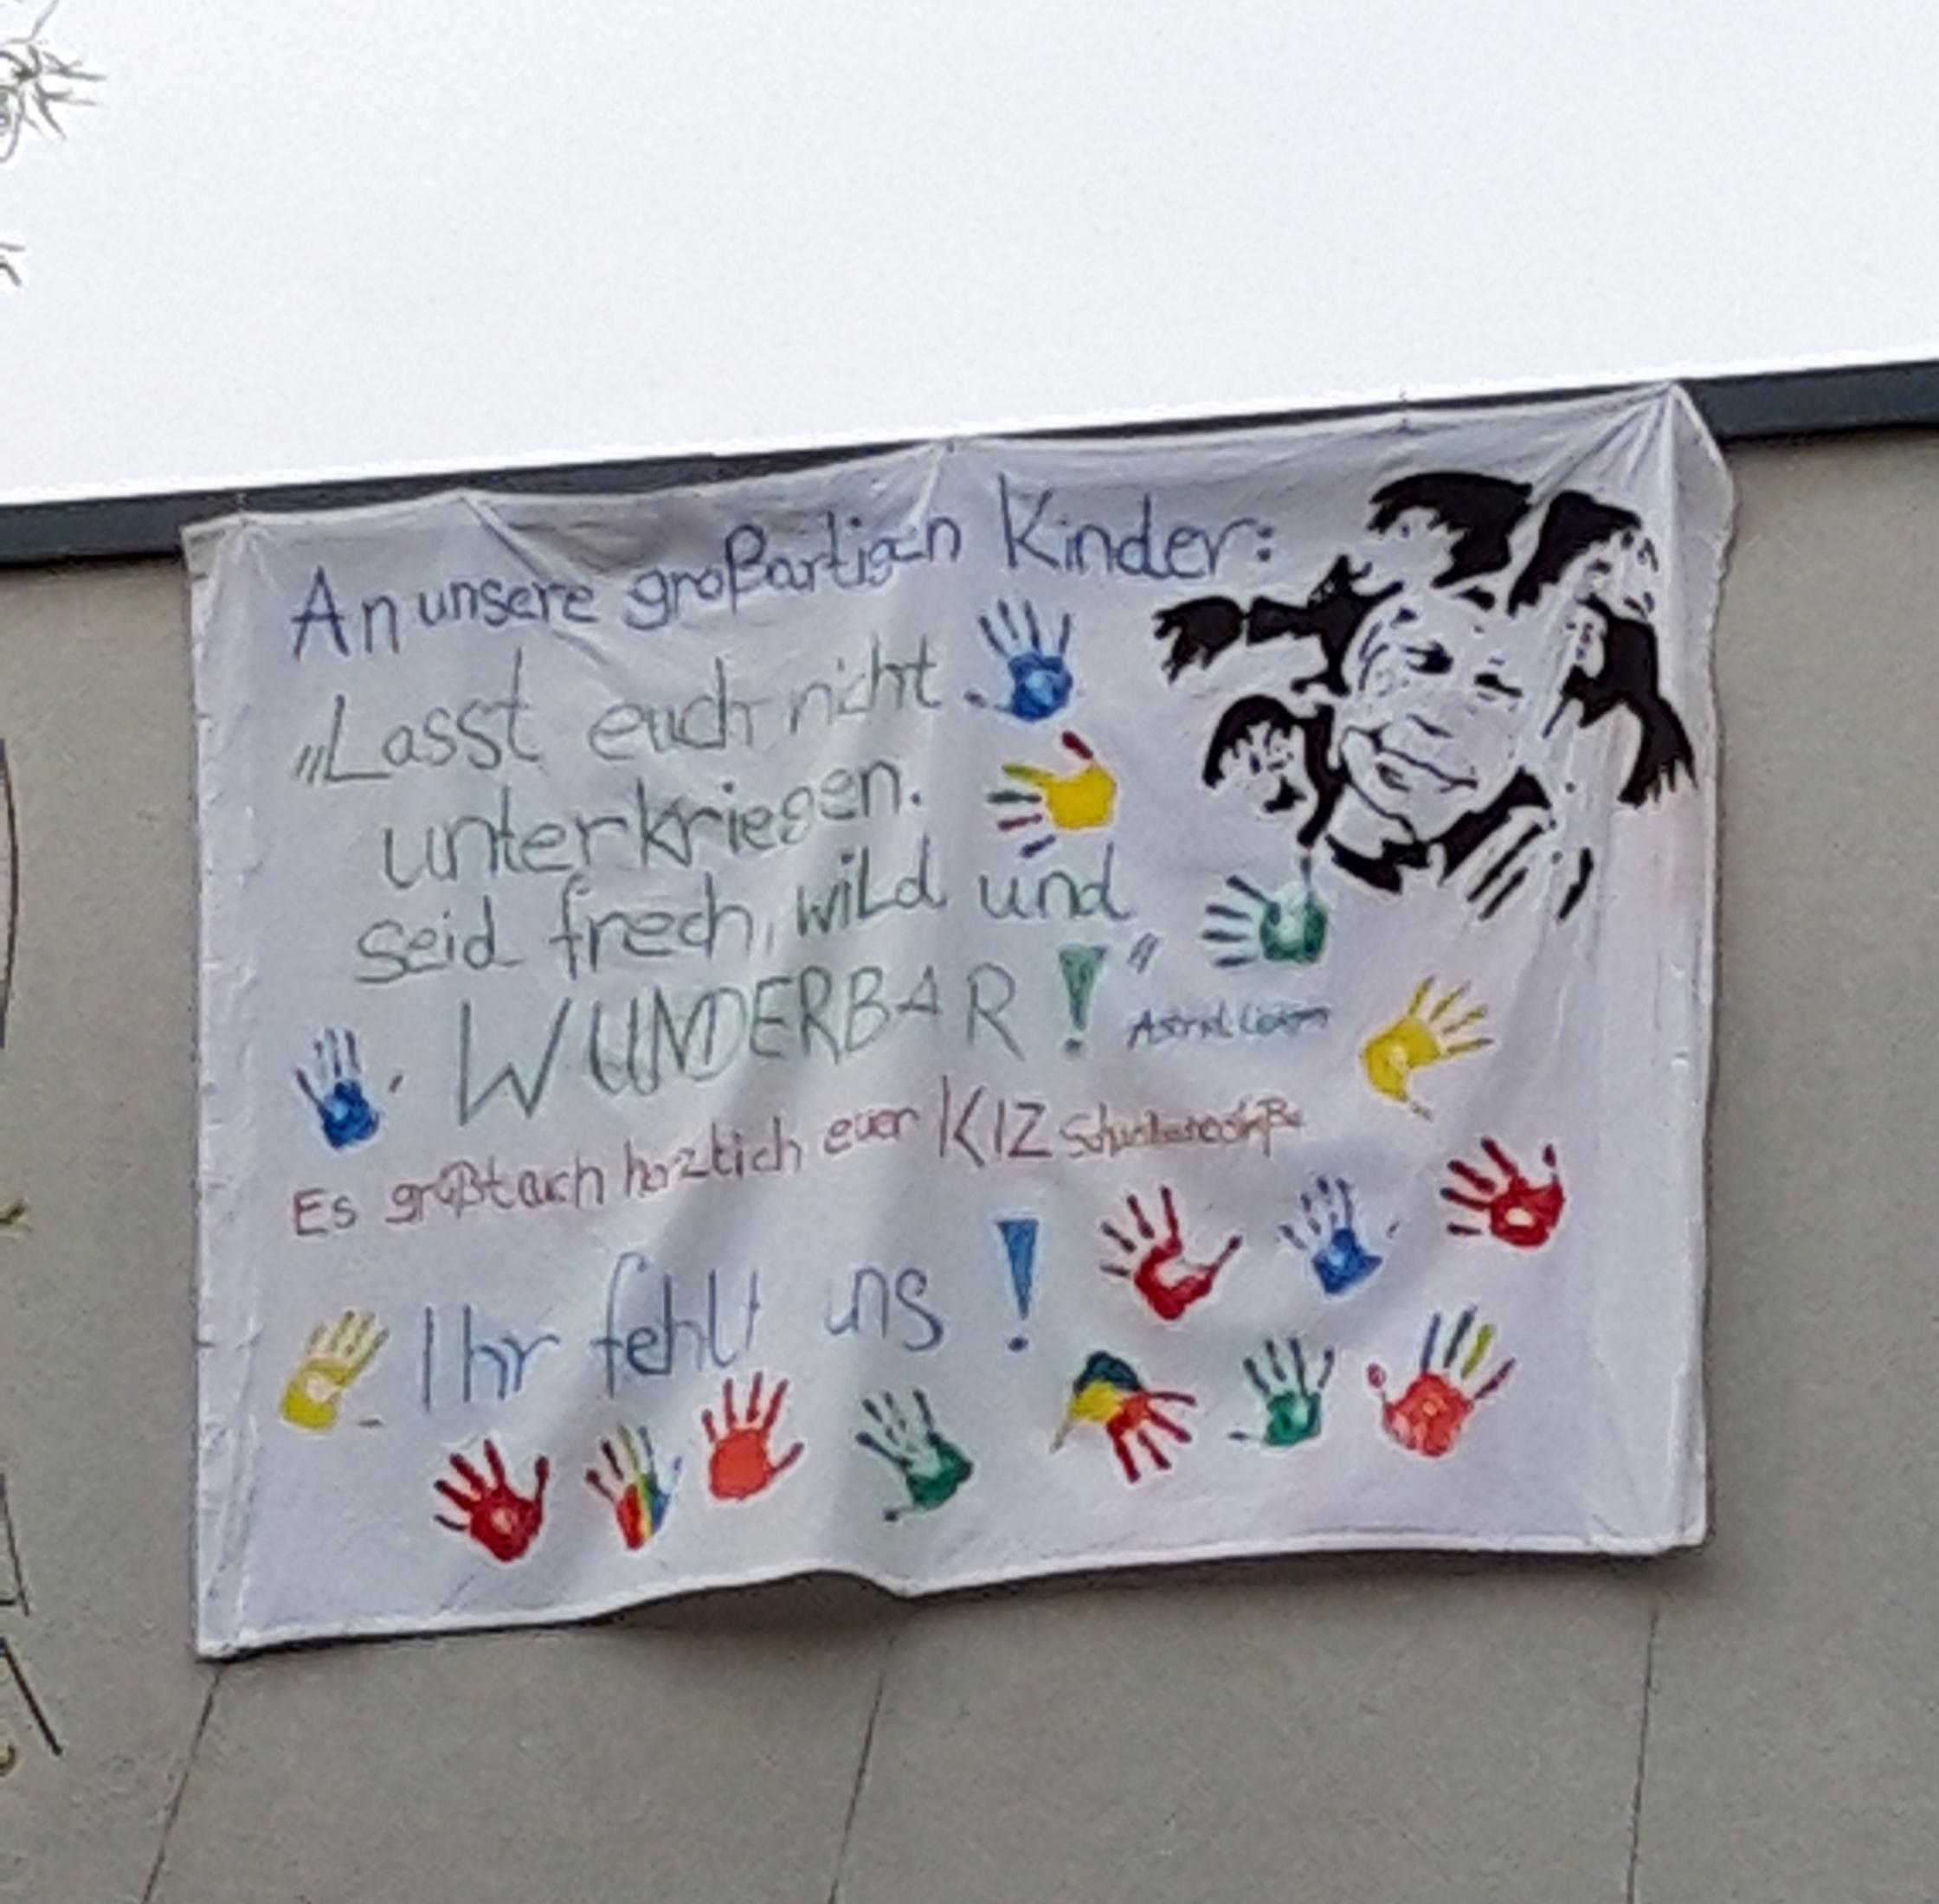 An unsere großartigen Kinder:
„Lasst euch nicht
unterkriegen.
seid frech, wild und
WUNDERBAR!"
Astrid
Es grüßt euch herzlich euer KIZ
Ihr fehlt uns!